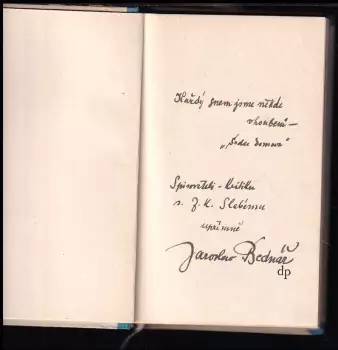 Každý jsme někde
vhoubeni —
"Srdce domova"
Spisovateli - kritiku
s. Z. K. Slabému
upřímně
Jaroslav Bednář
dp